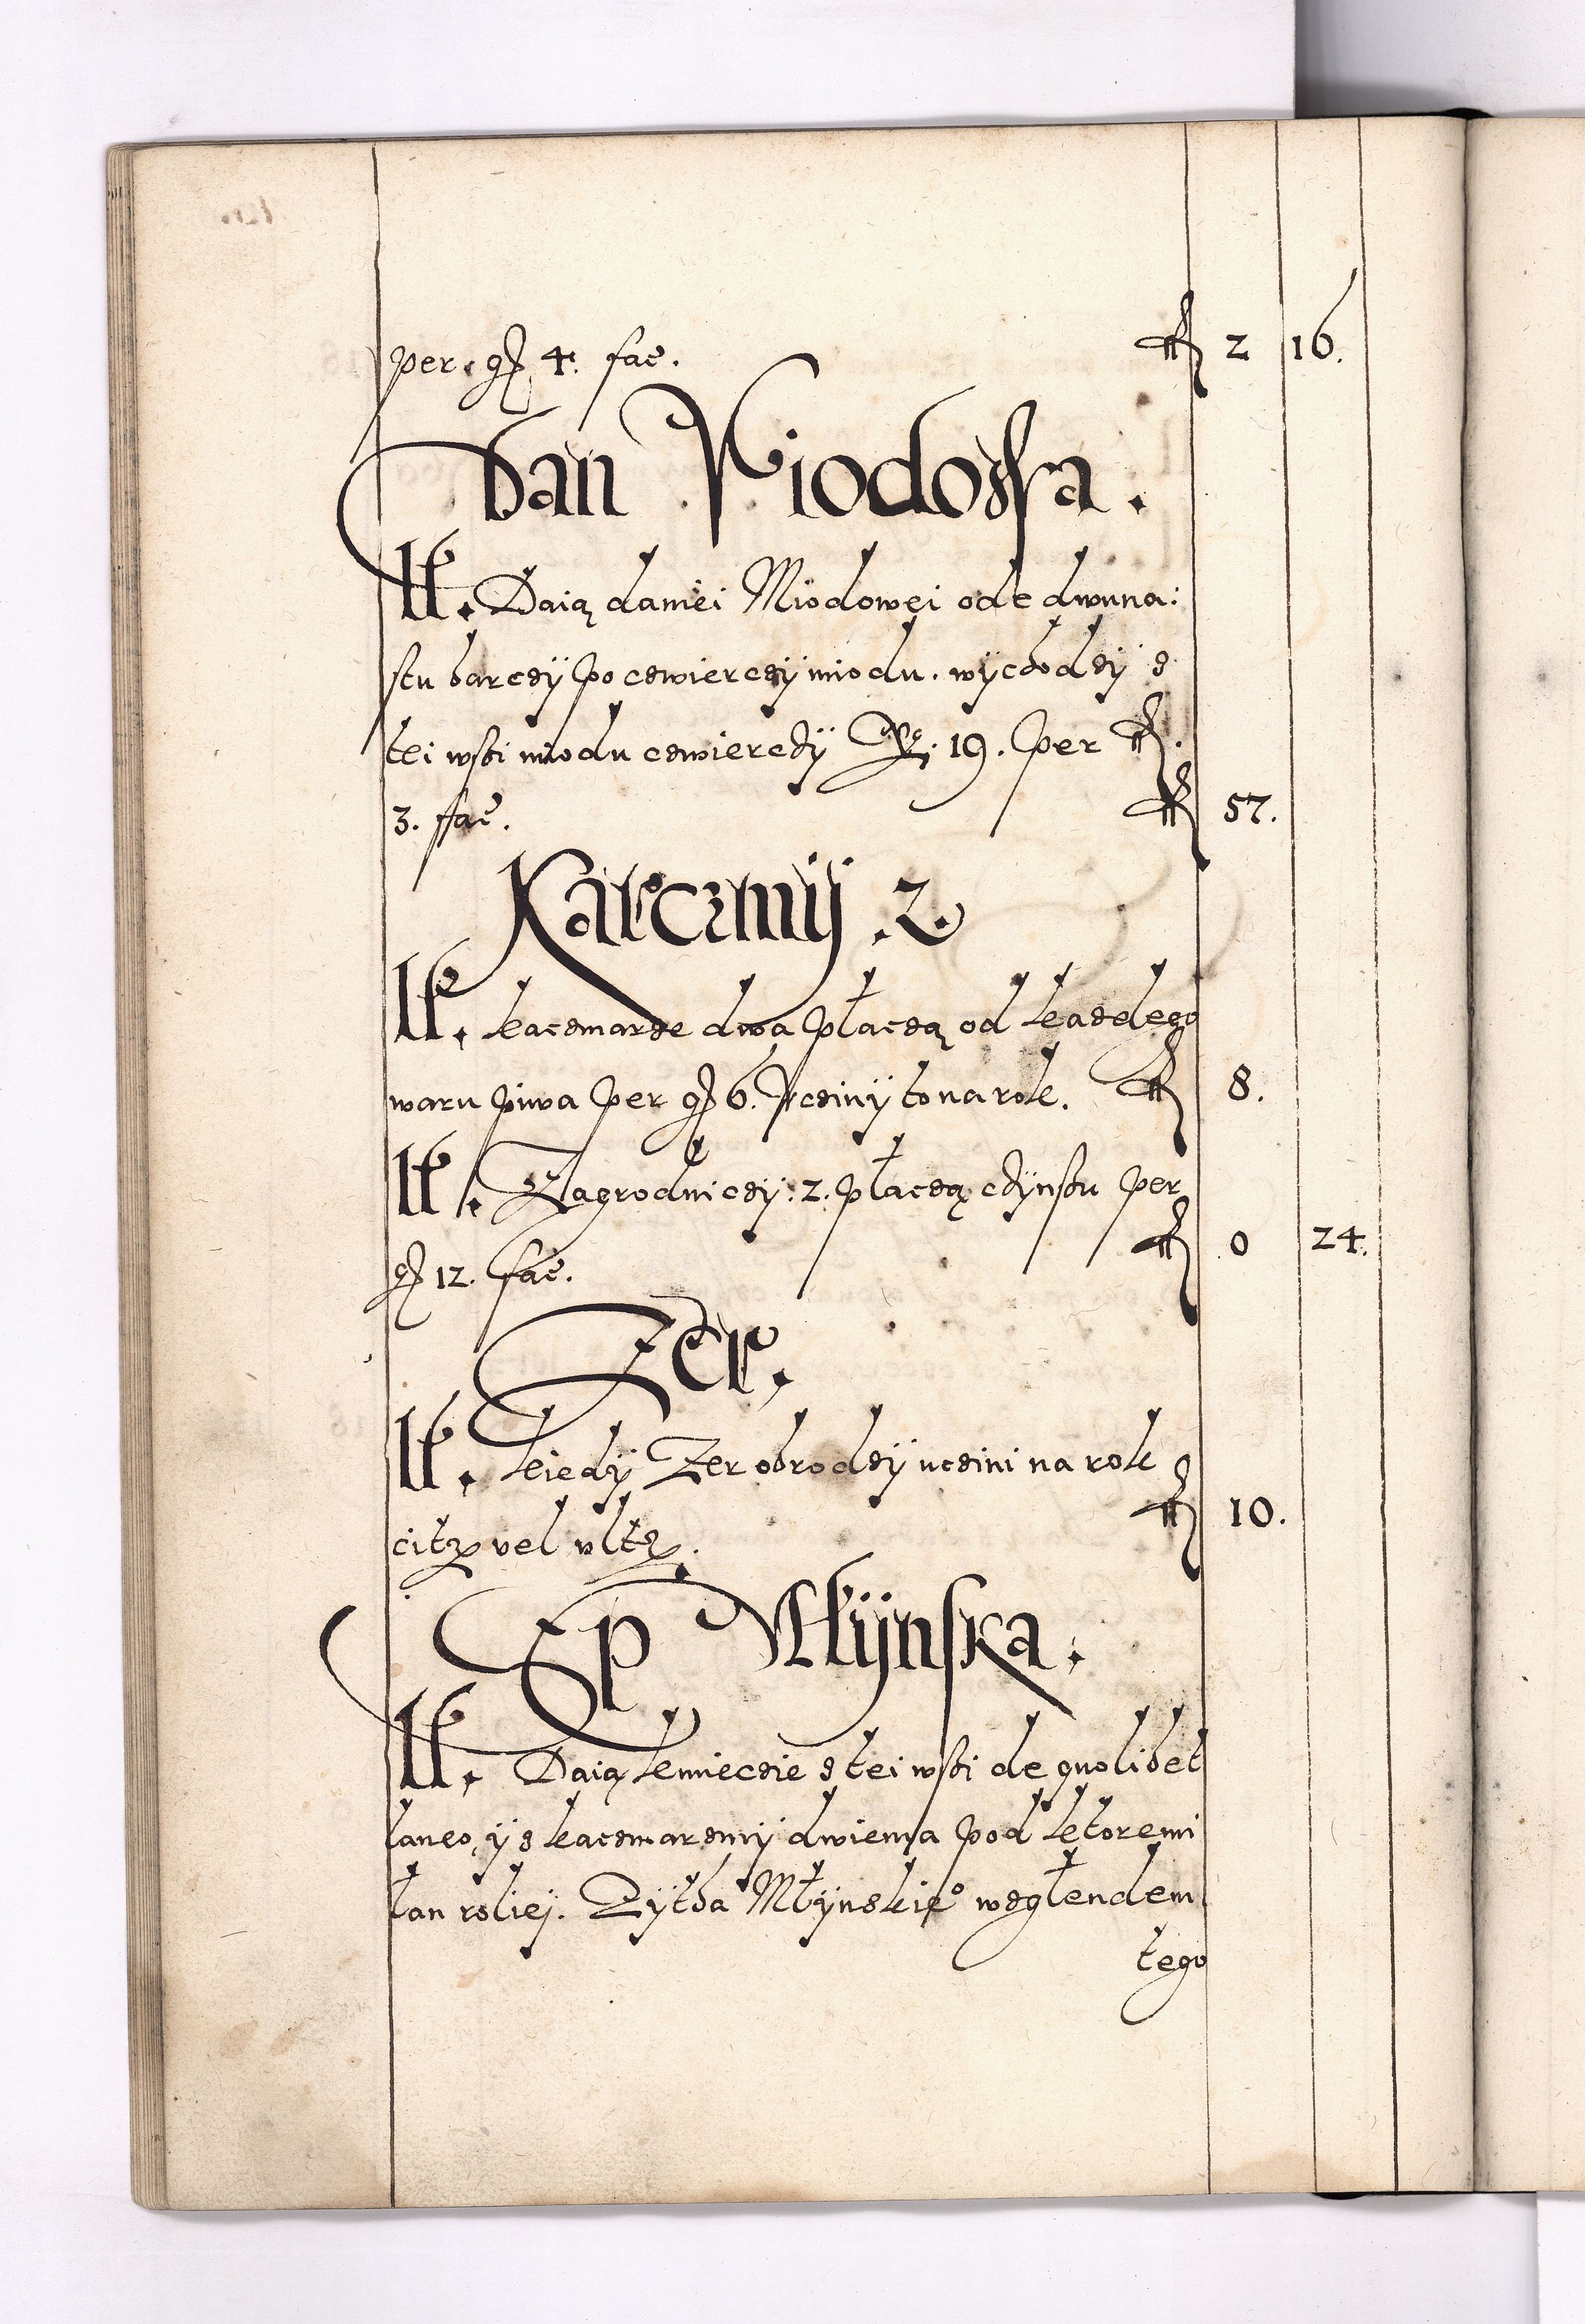 per. gr 4. fac. fl 2 16.
Dan Miodowa.
It. Daią daniei Miodowei ode dwuna:
stu barczÿ po czwierczÿ miodu. wÿchodzÿ z
tei wsi miodu czwierczÿ No. 19. per fl.
3. fac. fl 57.
Karczmÿ .2.
It. kaczmarze dwa płaczą od każdego
waru piwa per gr 6. vczinÿ to na rok. fl 8.
It. Zagrodniczÿ. 2. płaczą czÿnszu per
gr 12. fac. fl 0 24.
Zer.
It. kiedÿ Zer obrodzÿ uczini na rok
citra vel ultra. fl 10.
Sp Młÿnska.
It. Daią kmieczie z tei wsi de quolibet
laneo, ÿ z kaczmarzmÿ dwiema pod ktoremi
łan roliej. Zÿtha Młÿnskie° wzglendem
tego